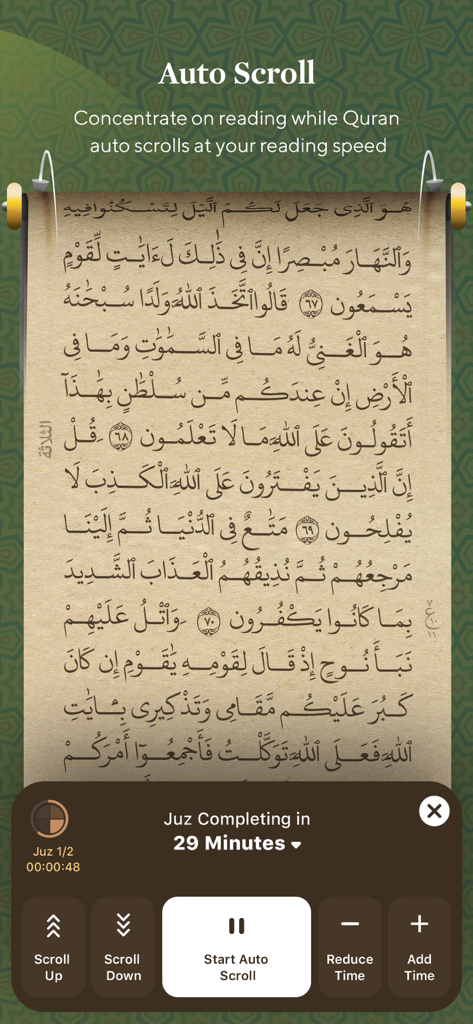 Auto Scroll
Concentrate on reading while Quran
auto scrolls at your reading speed
هُوَ ٱلَّذِى جَعَلَ لَكُمُ ٱلَّيْلَ لِتَسْكُنُوا۟ فِيهِ
وَٱلنَّهَارَ مُبْصِرًا إِنَّ فِى ذَٰلِكَ لَءَايَٰتٍ لِّقَوْمٍ
يَسْمَعُونَ ٦٧ قَالُوا۟ ٱتَّخَذَ ٱللَّهُ وَلَدًا سُبْحَٰنَهُۥ
هُوَ ٱلْغَنِىُّ لَهُۥ مَا فِى ٱلسَّمَٰوَٰتِ وَمَا فِى
ٱلْأَرْضِ إِنْ عِندَكُم مِّن سُلْطَٰنٍۭ بِهَٰذَآ
أَتَقُولُونَ عَلَى ٱللَّهِ مَا لَا تَعْلَمُونَ ٦٨ قُلْ
الثلاثة
إِنَّ ٱلَّذِينَ يَفْتَرُونَ عَلَى ٱللَّهِ ٱلْكَذِبَ لَا
يُفْلِحُونَ ٦٩ مَتَٰعٌ فِى ٱلدُّنْيَا ثُمَّ إِلَيْنَا
مَرْجِعُهُمْ ثُمَّ نُذِيقُهُمُ ٱلْعَذَابَ ٱلشَّدِيدَ
بِمَا كَانُوا۟ يَكْفُرُونَ ٧٠ وَٱتْلُ عَلَيْهِمْ
نَبَأَ نُوحٍ إِذْ قَالَ لِقَوْمِهِۦ يَٰقَوْمِ إِن كَانَ
كَبُرَ عَلَيْكُم مَّقَامِى وَتَذْكِيرِى بِـَٔايَٰتِ
ٱللَّهِ فَعَلَى ٱللَّهِ تَوَكَّلْتُ فَأَجْمِعُوٓا۟ أَمْرَكُمْ
Juz Completing in
29 Minutes
Juz 1/2
00:00:48
Scroll Up
Scroll Down
Start Auto Scroll
Reduce Time
Add Time